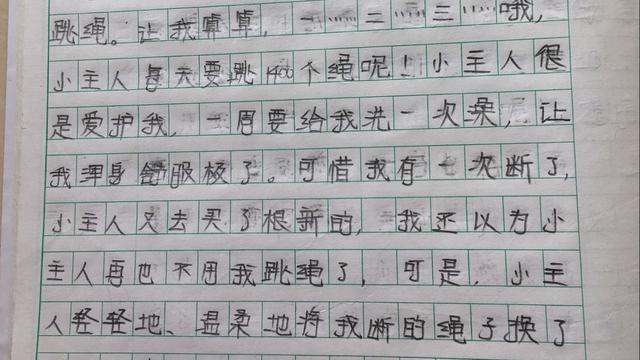 跳绳。让我算算，一……二……三……哦，
小主人每天要跳1400个绳呢！小主人很
是爱护我，一周要给我洗一次澡，让
我浑身舒服极了。可惜我有一次断了，
小主人又去买了根新的，我还以为小
主人再也不用我跳绳了，可是，小主
人轻轻地、温柔地将我断的绳子换了